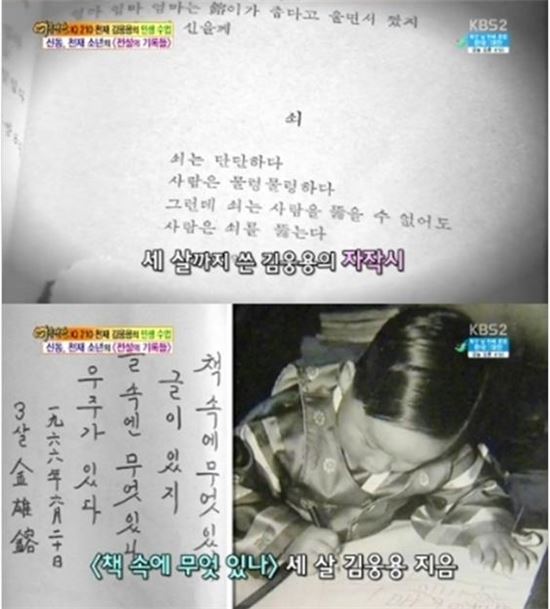 IQ 210 천재 김웅용의 인생 수업
신동, 천재 소년의 <전설의 기록들>
KBS2
엄마 엄마는 鎔이가 춥다고 울면서
신을께
쇠
쇠는 단단하다
사람은 물렁물렁하다
그런데 쇠는 사람을 뚫을 수 없어도
사람은 쇠를 뚫는다
세 살까지 쓴 김웅용의 자작시
IQ 210 천재 김웅용의 인생 수업
신동, 천재 소년의 <전설의 기록들>
KBS2
책 속에 무엇 있
글이 있지
글 속엔 무엇 있나
우주가 있다
一九六六年 六月 二十日
3살 金雄鎔
<책 속에 무엇 있나> 세 살 김웅용 지음